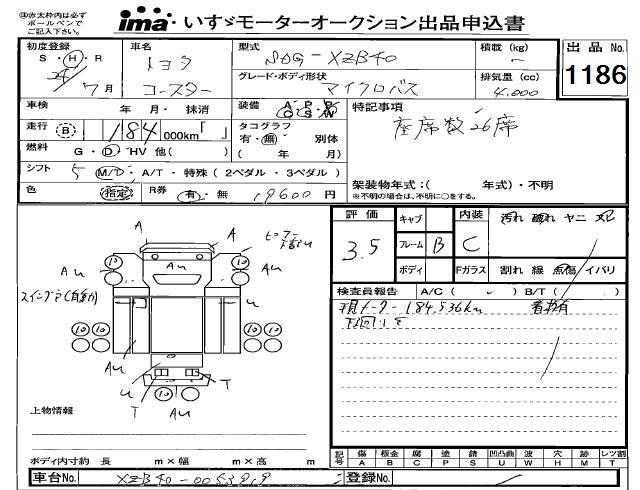 ㊟赤太枠内は必ず
ボールペンで
ご記入下さい。
ima いすゞモーターオークション出品申込書
初度登録 車名 型式 積載(kg) 出品No.
S・H・R トヨタ SDG-XZB50 ー 1186
24/7月 コースター グレード・ボディ形状 排気量(cc)
マイクロバス 4,000
車検 年 月・抹消 装備 A P P C S W 特記事項
走行 B 184 000km「 」 タコグラフ 座席数26席
有・無 別体
燃料 G・D・HV 他( ) ( 年 月)
シフト 5 M/T・A/T・特殊(2ペダル・3ペダル) 架装物年式:( 年式)・不明
※不明の場合は、不明に○をする。
色 指定 R券 有・無 19600円
評価 キャブ 内装 汚れ 破れ ヤニ
3.5 フレーム B C
ボディ Fガラス 割れ 線 点傷 イバリ
検査員報告 A/C( ) B/T( )
現メーター184,536km
下回り
A A
Au Au Au
スイングドア(自動)
10 10 10 10
Au A
u T T
Au
上物情報
ボディ内寸約 長 m×幅 m×高 m
記号 傷 板金 腐 塗 錆 凹凸曲 波 穴 跡 レツ割
A B C P S U W H M T
車台No. XZB50-0053919 登録No.